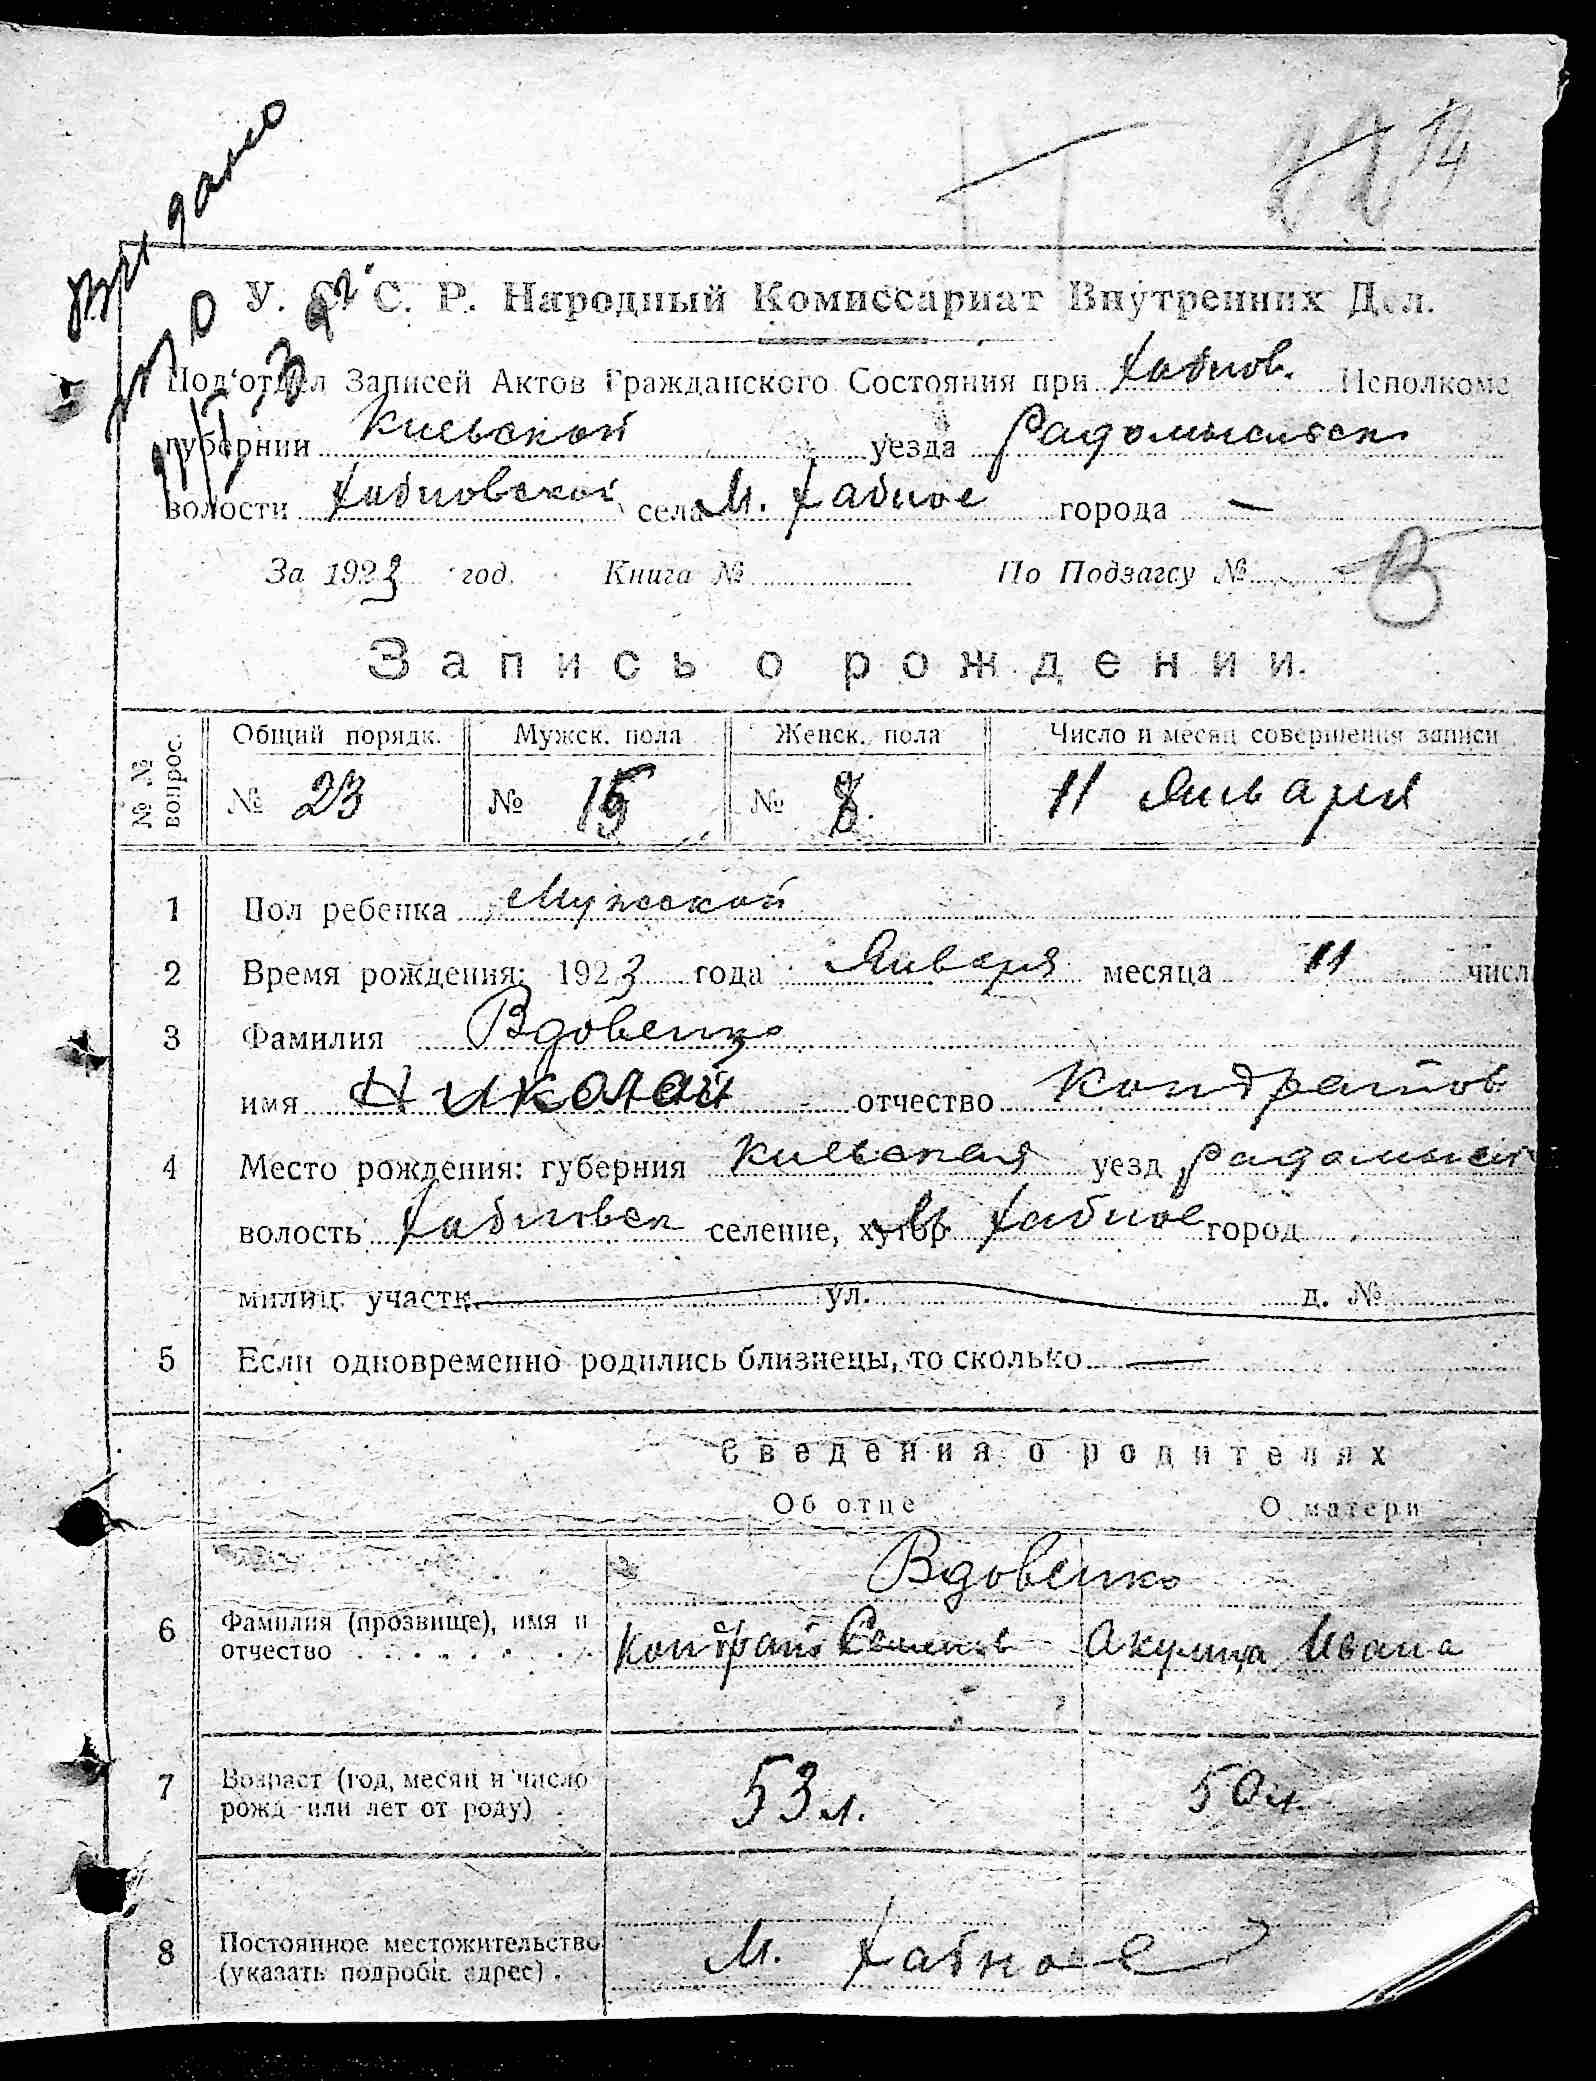 14
У. С. С. Р. Народный Комиссариат Внутренних Дел.
Под'отдел Записей Актов Гражданского Состояния при Хабнов. Исполкоме
губернии Киевской уезда Радомысльск
волости Хабновской села М. Хабное города —
За 1923 год. Книга № По Подзагсу №
В
Запись о рождении.
№ № вопрос. Общий порядк. Мужск. пола Женск. пола Число и месяц совершения записи
№ 23 № 15 № 8. 11 Января
1 Пол ребенка Мужской
2 Время рождения: 1923 года Января месяца 11 числ
3 Фамилия Вдовенко
имя Николай отчество Кондратов
4 Место рождения: губерния Киевская уезд Радомысл
волость Хабновск селение, хутор Хабное город
милиц. участк. ул. д. №
5 Если одновременно родились близнецы, то сколько —
Сведения о родителях
Об отце О матери
Вдовенко
6 Фамилия (прозвище), имя и
отчество Кондрат Семенов Акулина Ивана
7 Возраст (год, месяц и число
рожд или лет от роду) 53 л. 50 л.
8 Постоянное местожительство
(указать подробн. адрес). М. Хабное